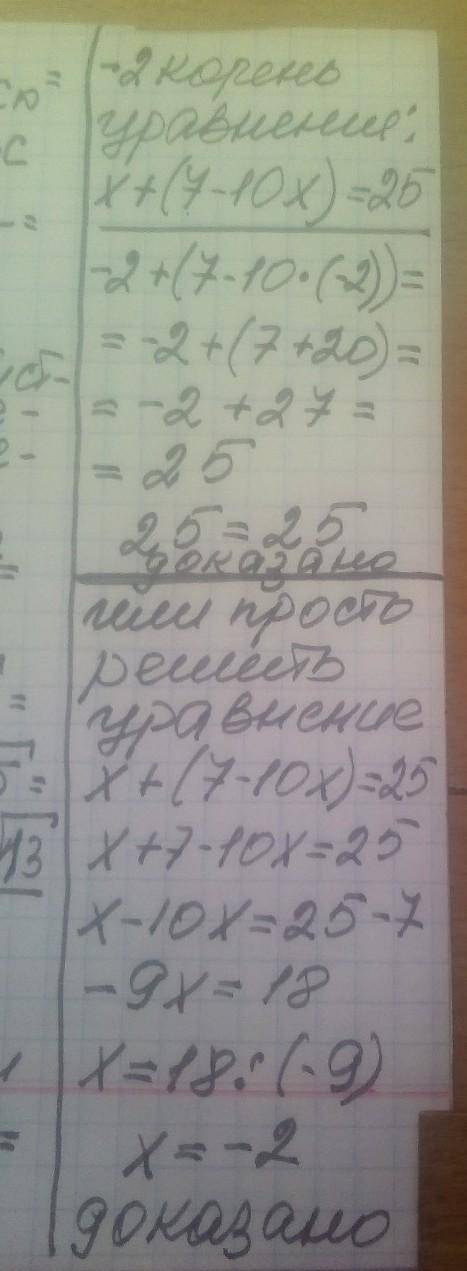 -2 корень
уравнения:
x+(7-10x)=25
-2+(7-10·(-2))=
=-2+(7+20)=
=-2+27=
=25
25=25
доказано
или просто
решить
уравнение
x+(7-10x)=25
x+7-10x=25
x-10x=25-7
-9x=18
x=18:(-9)
x=-2
доказано